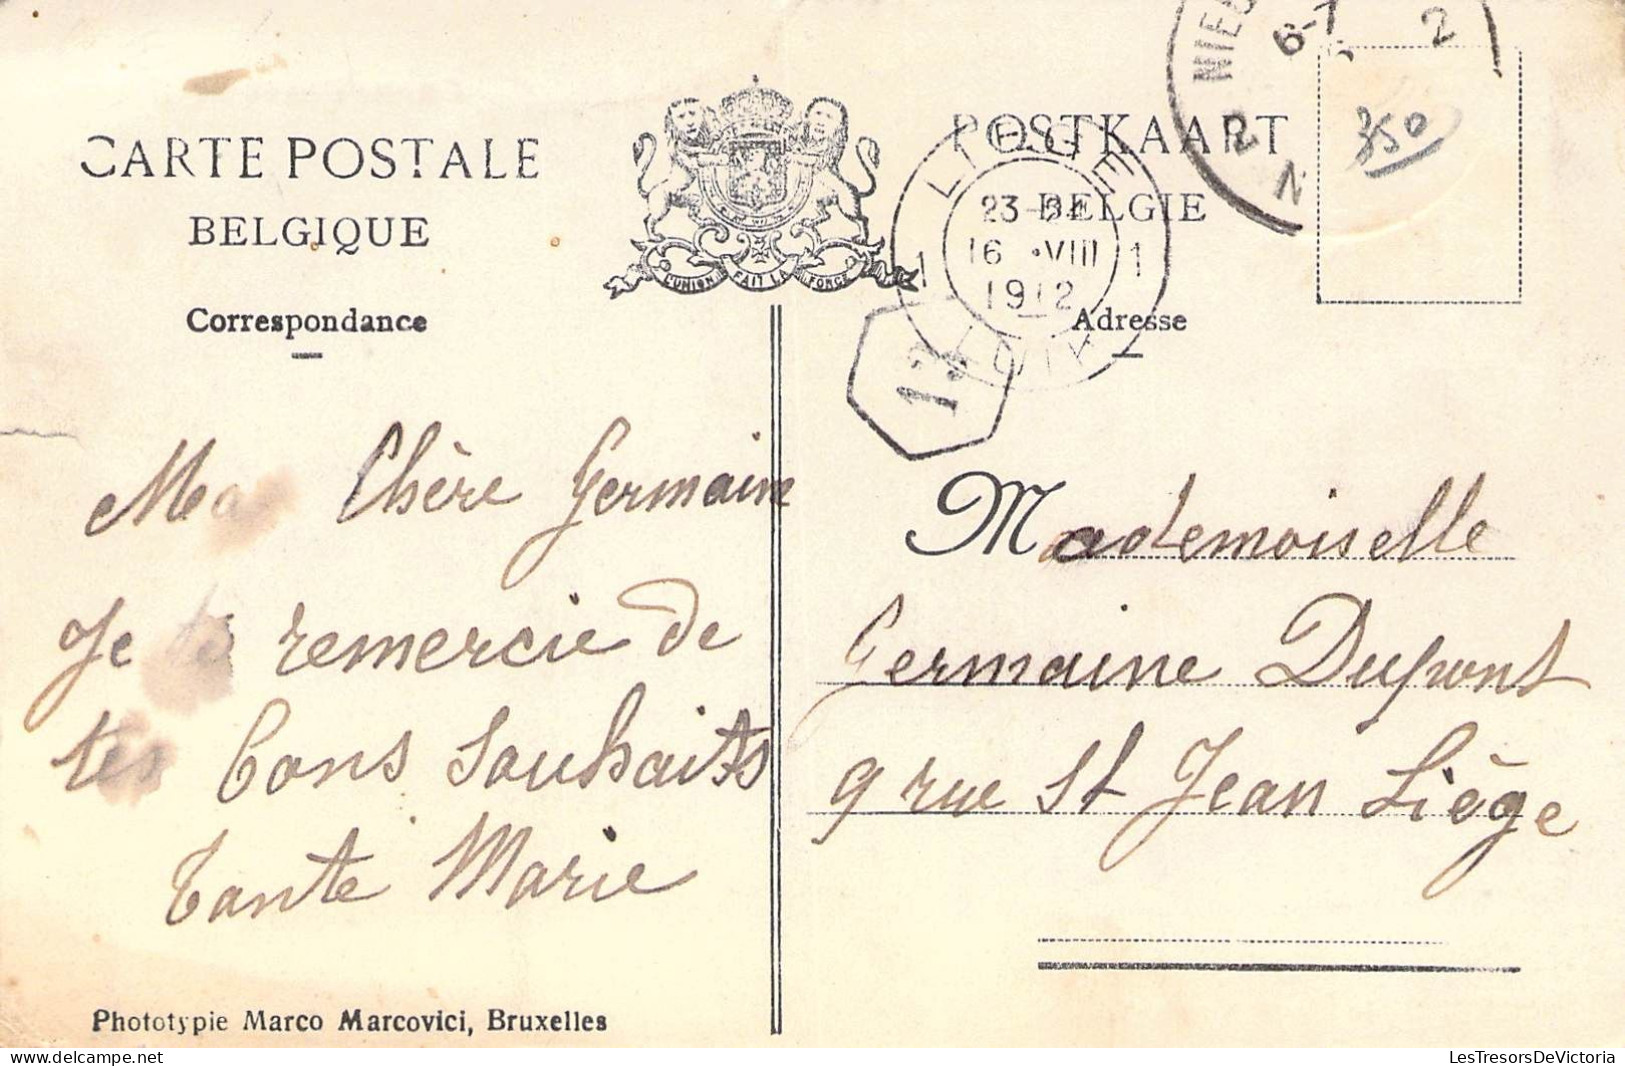 CARTE POSTALE
BELGIQUE
Correspondance
L'UNION FAIT LA FORCE
POSTKAART
BELGIE
Adresse
LIEGE
1 16 VIII 1
1912
13
6-7
2
350
Ma Chère Germaine
Je te remercie de
tes bons souhaits
tante Marie
Mademoiselle
Germaine Dupont
9 rue St Jean Liège
Phototypie Marco Marcovici, Bruxelles
LesTresorsDeVictoria